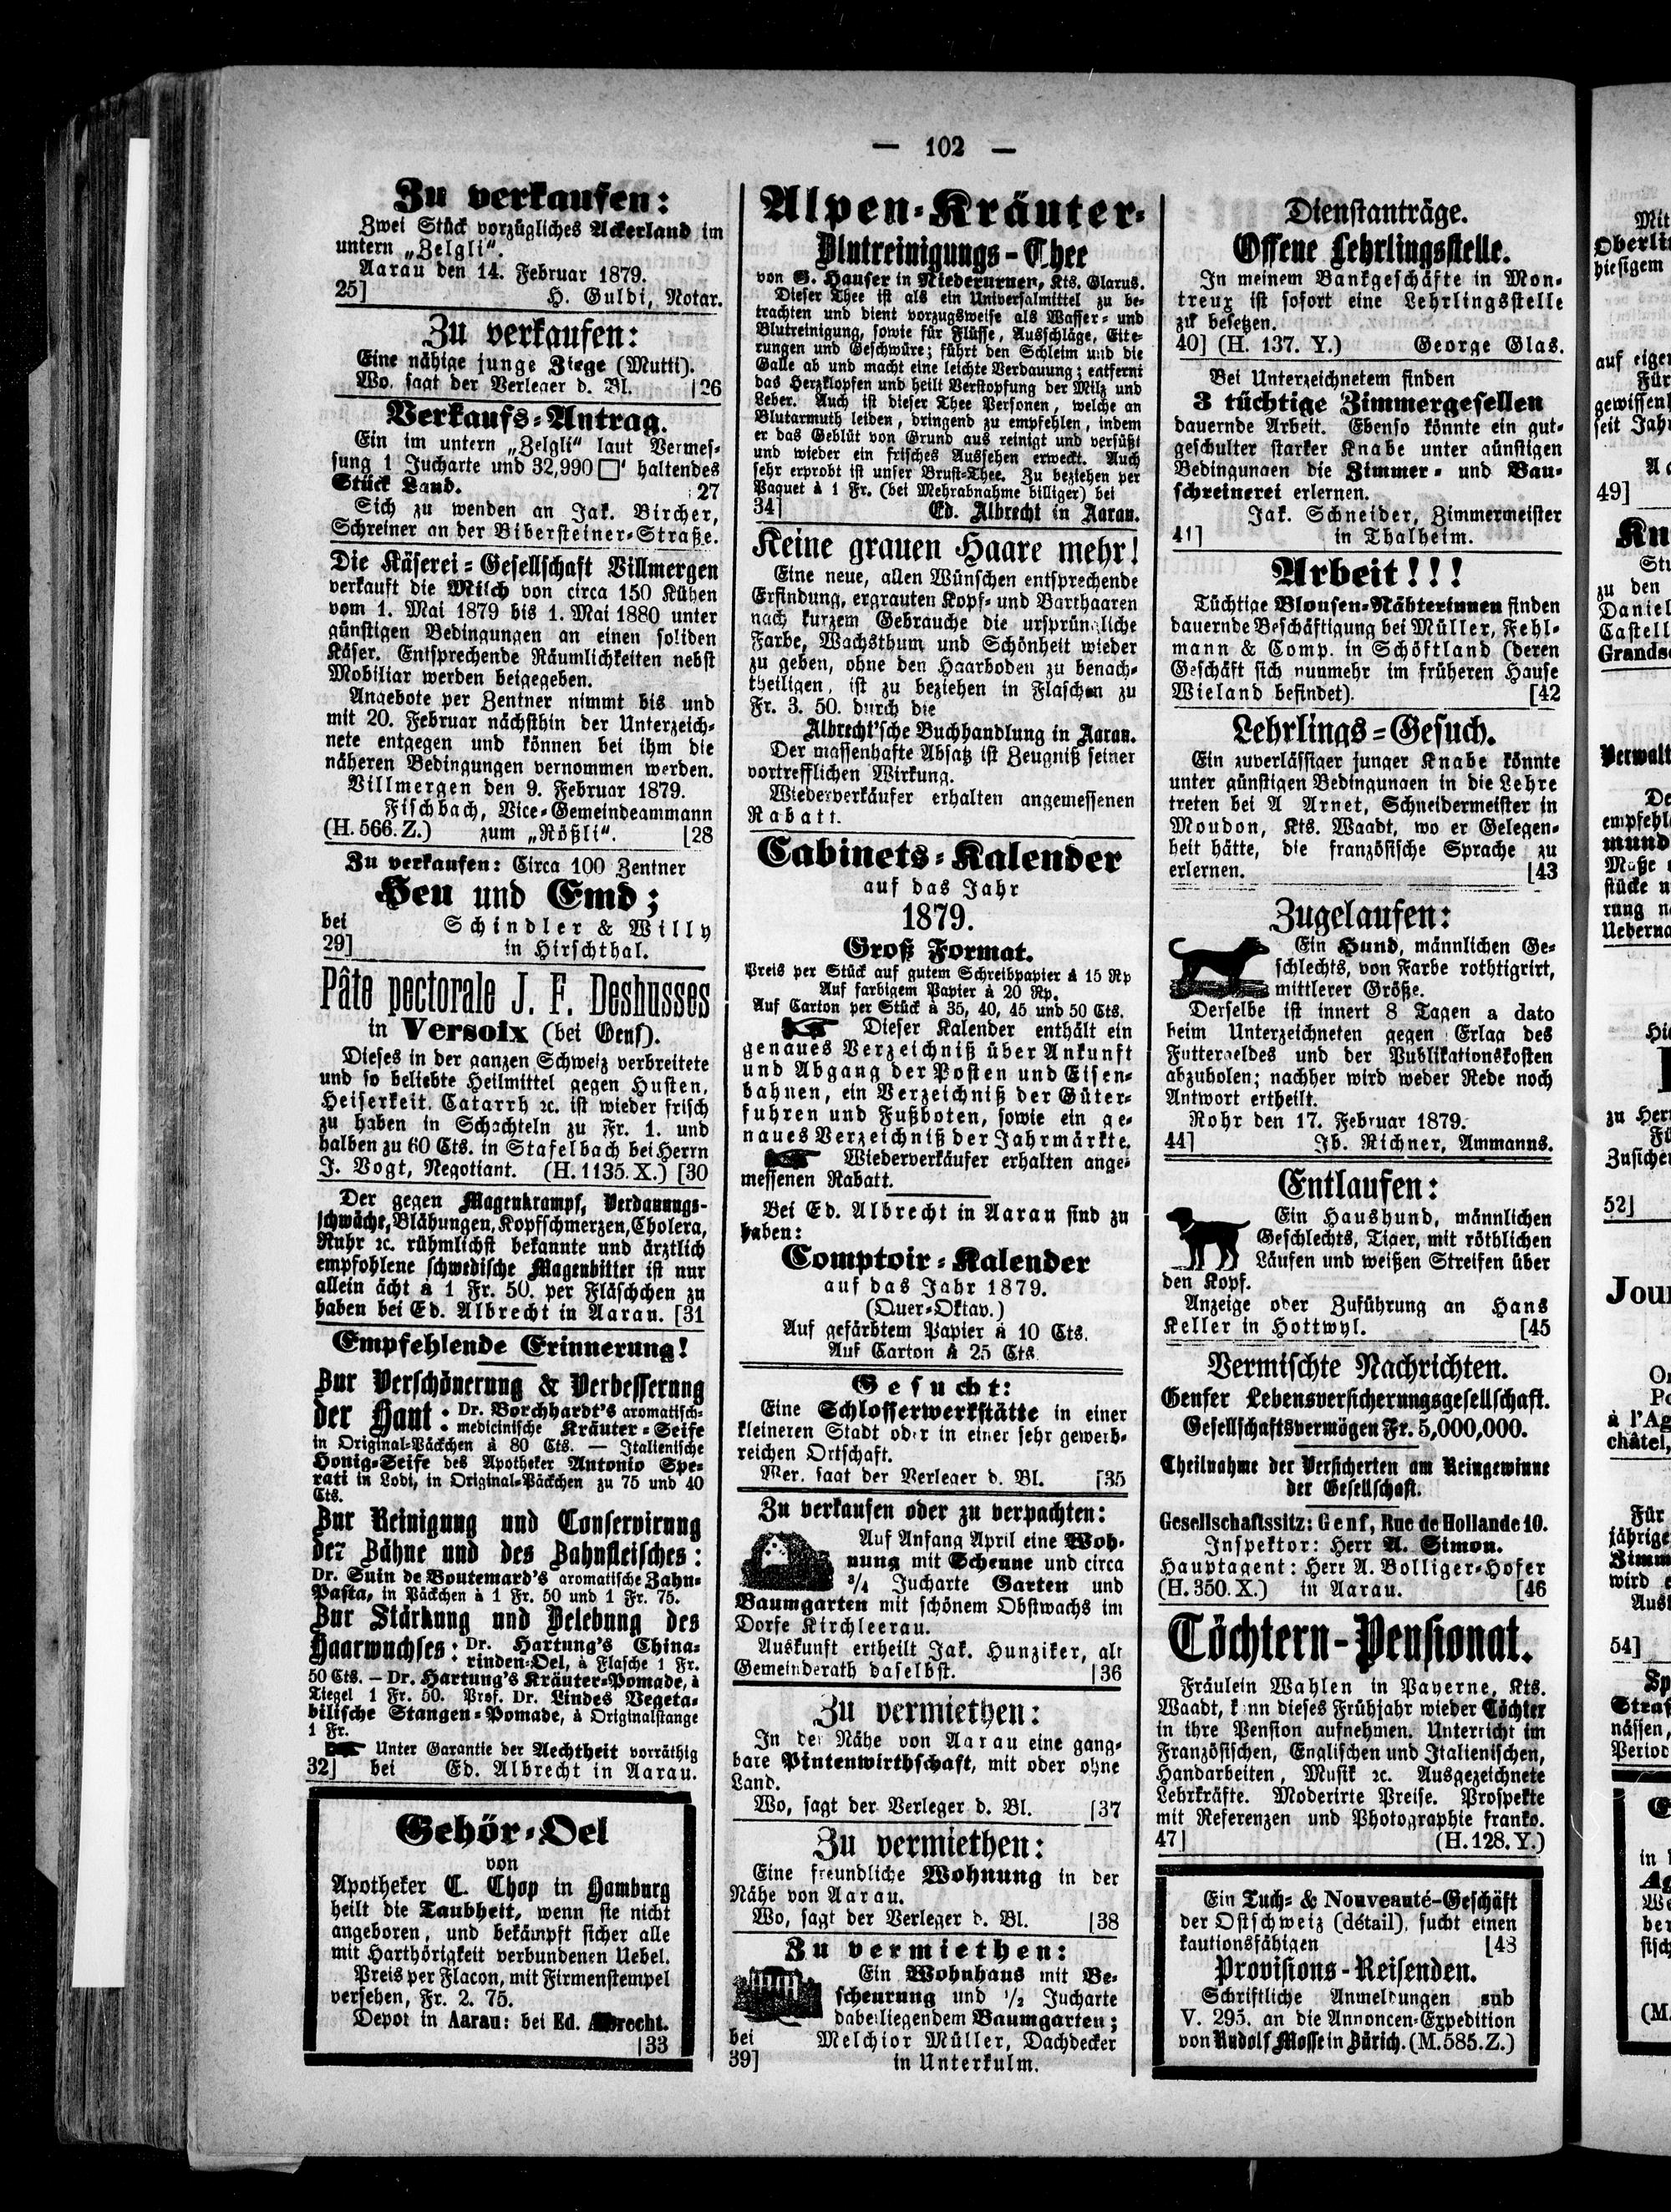 — 102 —
Zu verkaufen:
Zwei Stück vorzügliches Ackerland im
untern „Zelgli“.
Aarau den 14. Februar 1879.
25] H. Guldi, Notar.
Zu verkaufen:
Eine nähige junge Ziege (Mutti).
Wo, sagt der Verleger d. Bl. [26
Verkaufs-Antrag.
Ein im untern „Zelgli“ laut Vermes-
sung 1 Jucharte und 32,990 □' haltendes
Stück Land. 27
Sich zu wenden an Jak. Bircher,
Schreiner an der Bibersteiner-Straße.
Die Käserei-Gesellschaft Villmergen
verkauft die Milch von circa 150 Kühen
vom 1. Mai 1879 bis 1. Mai 1880 unter
günstigen Bedingungen an einen soliden
Käser. Entsprechende Räumlichkeiten nebst
Mobiliar werden beigegeben.
Angebote per Zentner nimmt bis und
mit 20. Februar nächsthin der Unterzeich-
nete entgegen und können bei ihm die
näheren Bedingungen vernommen werden.
Villmergen den 9. Februar 1879.
Fischbach, Vice-Gemeindeammann
(H. 566. Z.) zum „Rößli“. [28
Zu verkaufen: Circa 100 Zentner
Heu und Emd;
bei Schindler & Willy
29] in Hirschthal.
Pâte pectorale J. F. Deshusses
in Versoix (bei Genf).
Dieses in der ganzen Schweiz verbreitete
und so beliebte Heilmittel gegen Husten,
Heiserkeit, Catarrh ꝛc. ist wieder frisch
zu haben in Schachteln zu Fr. 1. und
halben zu 60 Cts. in Stafelbach bei Herrn
J. Vogt, Negotiant. (H. 1135. X.) [30
Der gegen Magenkrampf, Verdauungs-
schwäche, Blähungen, Kopfschmerzen, Cholera,
Ruhr ꝛc. rühmlichst bekannte und ärztlich
empfohlene schwedische Magenbitter ist nur
allein ächt à 1 Fr. 50. per Fläschchen zu
haben bei Ed. Albrecht in Aarau. [31
Empfehlende Erinnerung!
Zur Verschönerung & Verbesserung
der Haut: Dr. Borchhardt's aromatisch-
medicinische Kräuter-Seife
in Original-Päckchen à 80 Cts. — Italienische
Honig-Seife des Apotheker Antonio Spe-
rati in Lodi, in Original-Päckchen zu 75 und 40
Cts.
Zur Reinigung und Conservirung
der Zähne und des Zahnfleisches:
Dr. Suin de Boutemard's aromatische Zahn-
Pasta, in Päckchen à 1 Fr. 50 und 1 Fr. 75.
Zur Stärkung und Belebung des
Haarwuchses: Dr. Hartung's China-
rinden-Oel, à Flasche 1 Fr.
50 Cts. — Dr. Hartung's Kräuter-Pomade, à
Tiegel 1 Fr. 50. Prof. Dr. Lindes Vegeta-
bilische Stangen-Pomade, à Originalstange
1 Fr.
Unter Garantie der Aechtheit vorräthig
32] bei Ed. Albrecht in Aarau.
Gehör-Oel
von
Apotheker C. Chop in Hamburg
heilt die Taubheit, wenn sie nicht
angeboren, und bekämpft sicher alle
mit Harthörigkeit verbundenen Uebel.
Preis per Flacon, mit Firmenstempel
versehen, Fr. 2. 75.
Depot in Aarau: bei Ed. Albrecht.
[33
Alpen-Kräuter-
Blutreinigungs-Thee
von G. Hauser in Niederurnen, Kts. Glarus.
Dieser Thee ist als ein Universalmittel zu be-
trachten und dient vorzugsweise als Wasser- und
Blutreinigung, sowie für Flüsse, Ausschläge, Eite-
rungen und Geschwüre; führt den Schleim und die
Galle ab und macht eine leichte Verdauung; entfernt
das Herzklopfen und heilt Verstopfung der Milz und
Leber. Auch ist dieser Thee Personen, welche an
Blutarmuth leiden, dringend zu empfehlen, indem
er das Geblüt von Grund aus reinigt und versüßt
und wieder ein frisches Aussehen erweckt. Auch
sehr erprobt ist unser Brust-Thee. Zu beziehen per
Paquet à 1 Fr. (bei Mehrabnahme billiger) bei
34] Ed. Albrecht in Aarau.
Keine grauen Haare mehr!
Eine neue, allen Wünschen entsprechende
Erfindung, ergrauten Kopf- und Barthaaren
nach kurzem Gebrauche die ursprüngliche
Farbe, Wachsthum und Schönheit wieder
zu geben, ohne den Haarboden zu benach-
theiligen, ist zu beziehen in Flaschen zu
Fr. 3. 50. durch die
Albrecht'sche Buchhandlung in Aarau.
Der massenhafte Absatz ist Zeugniß seiner
vortrefflichen Wirkung.
Wiederverkäufer erhalten angemessenen
Rabatt.
Cabinets-Kalender
auf das Jahr
1879.
Groß Format.
Preis per Stück auf gutem Schreibpapier à 15 Rp
Auf farbigem Papier à 20 Rp.
Auf Carton per Stück à 35, 40, 45 und 50 Cts.
Dieser Kalender enthält ein
genaues Verzeichniß über Ankunft
und Abgang der Posten und Eisen-
bahnen, ein Verzeichniß der Güter-
fuhren und Fußboten, sowie ein ge-
naues Verzeichniß der Jahrmärkte.
Wiederverkäufer erhalten ange-
messenen Rabatt.
Bei Ed. Albrecht in Aarau sind zu
haben:
Comptoir-Kalender
auf das Jahr 1879.
(Quer-Oktav.)
Auf gefärbtem Papier à 10 Cts.
Auf Carton à 25 Cts.
Gesucht:
Eine Schlosserwerkstätte in einer
kleineren Stadt oder in einer sehr gewerb-
reichen Ortschaft.
Wer, sagt der Verleger d. Bl. [35
Zu verkaufen oder zu verpachten:
Auf Anfang April eine Woh-
nung mit Scheune und circa
3/4 Jucharte Garten und
Baumgarten mit schönem Obstwachs im
Dorfe Kirchleerau.
Auskunft ertheilt Jak. Hunziker, alt
Gemeinderath daselbst. [36
Zu vermiethen:
In der Nähe von Aarau eine gang-
bare Pintenwirthschaft, mit oder ohne
Land.
Wo, sagt der Verleger d. Bl. [37
Zu vermiethen:
Eine freundliche Wohnung in der
Nähe von Aarau.
Wo, sagt der Verleger d. Bl. [38
Zu vermiethen:
Ein Wohnhaus mit Be-
scheurung und 1/2 Jucharte
dabeiliegendem Baumgarten;
bei Melchior Müller, Dachdecker
39] in Unterkulm.
Dienstanträge.
Offene Lehrlingsstelle.
In meinem Bankgeschäfte in Mon-
treux ist sofort eine Lehrlingsstelle
zu besetzen.
40] (H. 137. Y.) George Glas.
Bei Unterzeichnetem finden
3 tüchtige Zimmergesellen
dauernde Arbeit. Ebenso könnte ein gut-
geschulter starker Knabe unter günstigen
Bedingungen die Zimmer- und Bau-
schreinerei erlernen.
Jak. Schneider, Zimmermeister
41] in Thalheim.
Arbeit!!!
Tüchtige Blousen-Nähterinnen finden
dauernde Beschäftigung bei Müller, Fehl-
mann & Comp. in Schöftland (deren
Geschäft sich nunmehr im früheren Hause
Wieland befindet). [42
Lehrlings-Gesuch.
Ein zuverlässiger junger Knabe könnte
unter günstigen Bedingungen in die Lehre
treten bei A Arnet, Schneidermeister in
Moudon, Kts. Waadt, wo er Gelegen-
heit hätte, die französische Sprache zu
erlernen. [43
Zugelaufen:
Ein Hund, männlichen Ge-
schlechts, von Farbe rothtigrirt,
mittlerer Größe.
Derselbe ist innert 8 Tagen a dato
beim Unterzeichneten gegen Erlag des
Futtergeldes und der Publikationskosten
abzuholen; nachher wird weder Rede noch
Antwort ertheilt.
Rohr den 17. Februar 1879.
44] Jb. Richner, Ammanns.
Entlaufen:
Ein Haushund, männlichen
Geschlechts, Tiger, mit röthlichen
Läufen und weißen Streifen über
den Kopf.
Anzeige oder Zuführung an Hans
Keller in Hottwyl. [45
Vermischte Nachrichten.
Genfer Lebensversicherungsgesellschaft.
Gesellschaftsvermögen Fr. 5,000,000.
Theilnahme der Versicherten am Reingewinne
der Gesellschaft.
Gesellschaftssitz: Genf, Rue de Hollande 10.
Inspektor: Herr A. Simon.
Hauptagent: Herr A. Bolliger-Hofer
(H. 350. X.) in Aarau. [46
Töchtern-Pensionat.
Fräulein Wahlen in Payerne, Kts.
Waadt, kann dieses Frühjahr wieder Töchter
in ihre Pension aufnehmen. Unterricht im
Französischen, Englischen und Italienischen,
Handarbeiten, Musik ꝛc. Ausgezeichnete
Lehrkräfte. Moderirte Preise. Prospekte
mit Referenzen und Photographie franko.
47] (H. 128. Y.)
Ein Tuch- & Nouveauté-Geschäft
der Ostschweiz (détail), sucht einen
kautionsfähigen [48
Provisions-Reisenden.
Schriftliche Anmeldungen sub
V. 295. an die Annoncen-Expedition
von Rudolf Mosse in Zürich. (M. 585. Z.)
Mit
Oberli
hiesigem
auf eigen
Für
gewissen
seit Jah
49]
Kn
zu den
Daniel
Castell
Grands
Verwalt
empfehl
mund
stücke
Ueberna
zu Her
Zusicher
52]
Jour
à l'Ag
châtel,
Für
jährige
Zimm
wird
54]
Straf
nässen,
Period
in
(M.